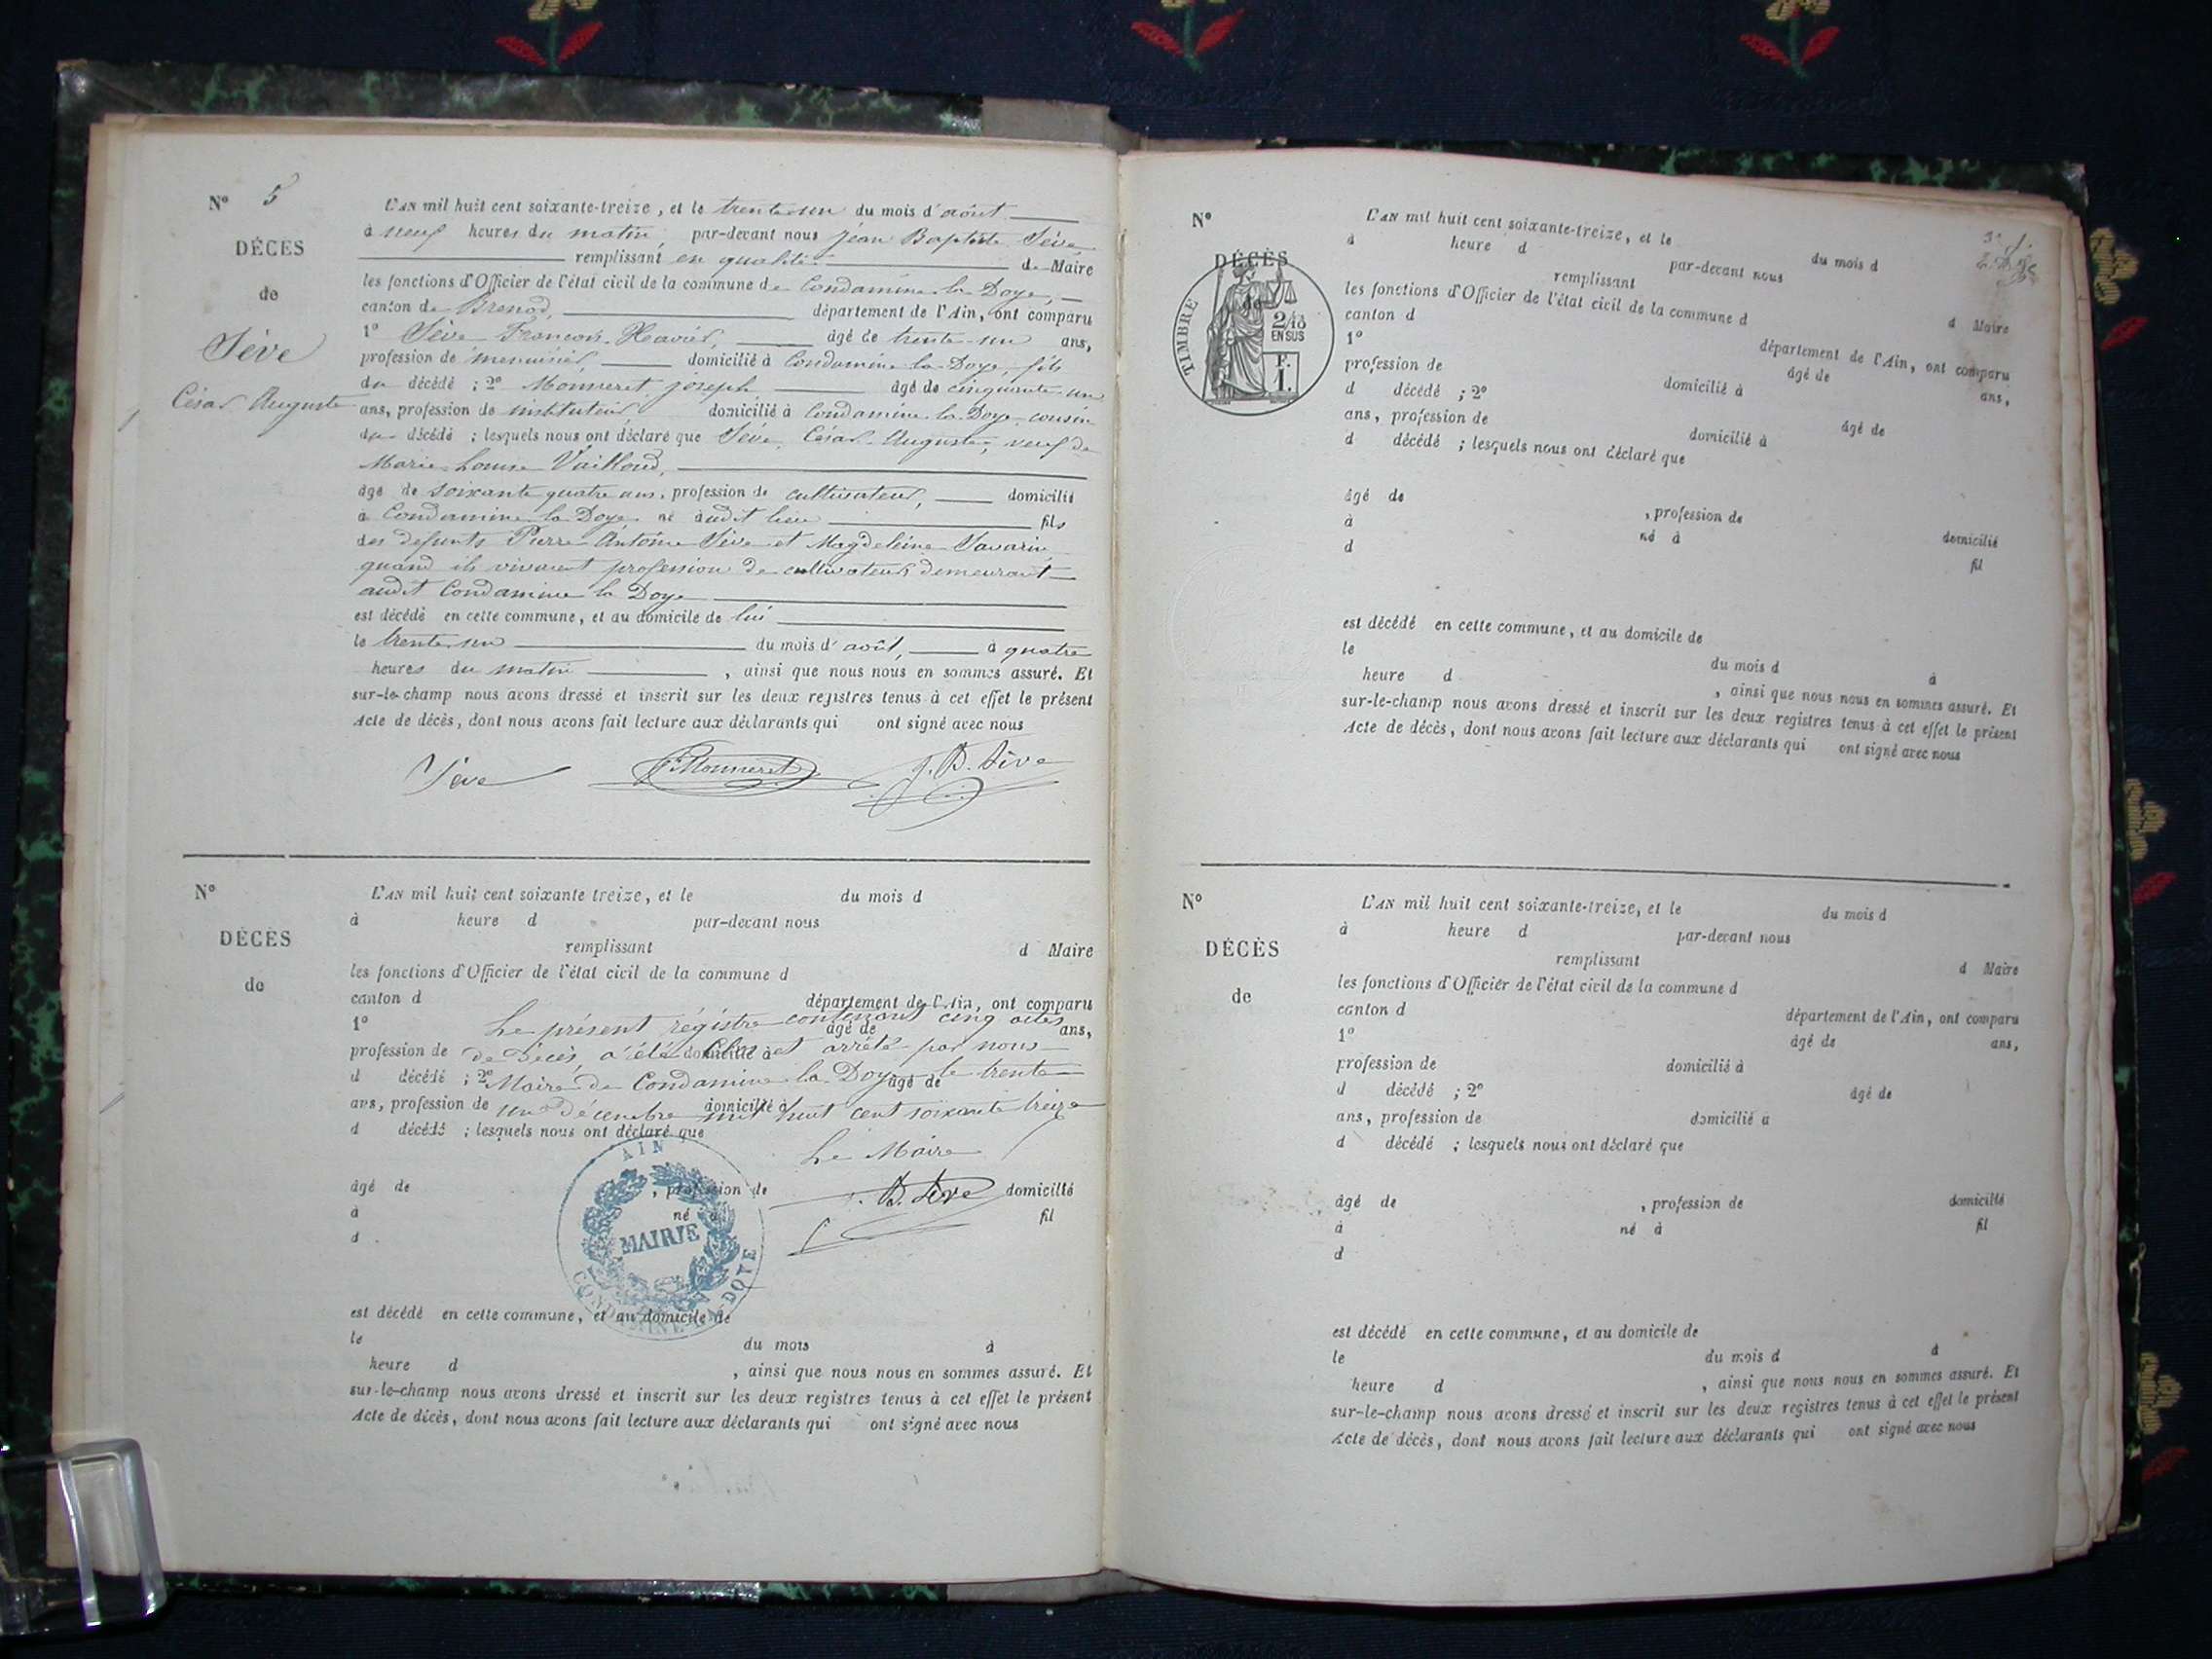 N° 5
DÉCÈS
de
Sève
César Auguste
L'AN mil huit cent soixante-treize, et le trente un du mois d'août
à neuf heures du matin, par-devant nous Jean Baptiste Sève
remplissant en qualité de Maire
les fonctions d'Officier de l'état civil de la commune de Condamine la Doye,
canton de Brenod, département de l'Ain, ont comparu
1° Sève François Xavier, âgé de trente un ans,
profession de menuisier, domicilié à Condamine la Doye, fils
du décédé ; 2° Monneret Joseph âgé de cinquante un
ans, profession de instituteur domicilié à Condamine la Doye, cousin
du décédé ; lesquels nous ont déclaré que Sève, César Auguste, veuf de
Marie Louise Vailloud,
âgé de soixante quatre ans, profession de cultivateur, domicilié
à Condamine la Doye né audit lieu fils
des defunts Pierre Antoine Sève et Magdeleine Savarin
quand ils vivaient profession de cultivateurs demeurant
audit Condamine la Doye
est décédé en cette commune, et au domicile de lui
le trente un du mois d'août, à quatre
heures du matin , ainsi que nous nous en sommes assuré. Et
sur-le-champ nous avons dressé et inscrit sur les deux registres tenus à cet effet le présent
Acte de décès, dont nous avons fait lecture aux déclarants qui ont signé avec nous
Sève Monneret J. B. Sève
N°
DÉCÈS
de
L'AN mil huit cent soixante treize, et le du mois d
à heure d par-devant nous
remplissant d Maire
les fonctions d'Officier de l'état civil de la commune d
canton d département de l'Ain, ont comparu
1° âgé de ans,
Le présent régistre contenant cinq actes
profession de domicilié à
de Décès, a été Clos et arrêté par nous
d décédé ; 2° âgé de
Maire de Condamine la Doye le trente
ans, profession de domicilié à
un Décembre mil huit cent soixante treize
d décédé ; lesquels nous ont déclaré que
Le Maire
AIN
MAIRIE
CONDAMINE LA DOYE
âgé de , profession de domicilié
J. B. Sève
à né à fil
d
est décédé en cette commune, et au domicile de
le du mois à
heure d , ainsi que nous nous en sommes assuré. Et
sur-le-champ nous avons dressé et inscrit sur les deux registres tenus à cet effet le présent
Acte de décès, dont nous avons fait lecture aux déclarants qui ont signé avec nous
N°
DÉCÈS
de
TIMBRE
2/10
EN SUS
F.
1.
L'AN mil huit cent soixante-treize, et le du mois d
à heure d par-devant nous
remplissant d Maire
les fonctions d'Officier de l'état civil de la commune d
canton d département de l'Ain, ont comparu
1° âgé de ans,
profession de domicilié à
d décédé ; 2° âgé de
ans, profession de domicilié à
d décédé ; lesquels nous ont déclaré que
âgé de , profession de domicilié
à né à fil
d
est décédé en cette commune, et au domicile de
le du mois d à
heure d , ainsi que nous nous en sommes assuré. Et
sur-le-champ nous avons dressé et inscrit sur les deux registres tenus à cet effet le présent
Acte de décès, dont nous avons fait lecture aux déclarants qui ont signé avec nous
N°
DÉCÈS
de
L'AN mil huit cent soixante-treize, et le du mois d
à heure d par-devant nous
remplissant d Maire
les fonctions d'Officier de l'état civil de la commune d
canton d département de l'Ain, ont comparu
1° âgé de ans,
profession de domicilié à
d décédé ; 2° âgé de
ans, profession de domicilié à
d décédé ; lesquels nous ont déclaré que
âgé de , profession de domicilié
à né à fil
d
est décédé en cette commune, et au domicile de
le du mois d à
heure d , ainsi que nous nous en sommes assuré. Et
sur-le-champ nous avons dressé et inscrit sur les deux registres tenus à cet effet le présent
Acte de décès, dont nous avons fait lecture aux déclarants qui ont signé avec nous